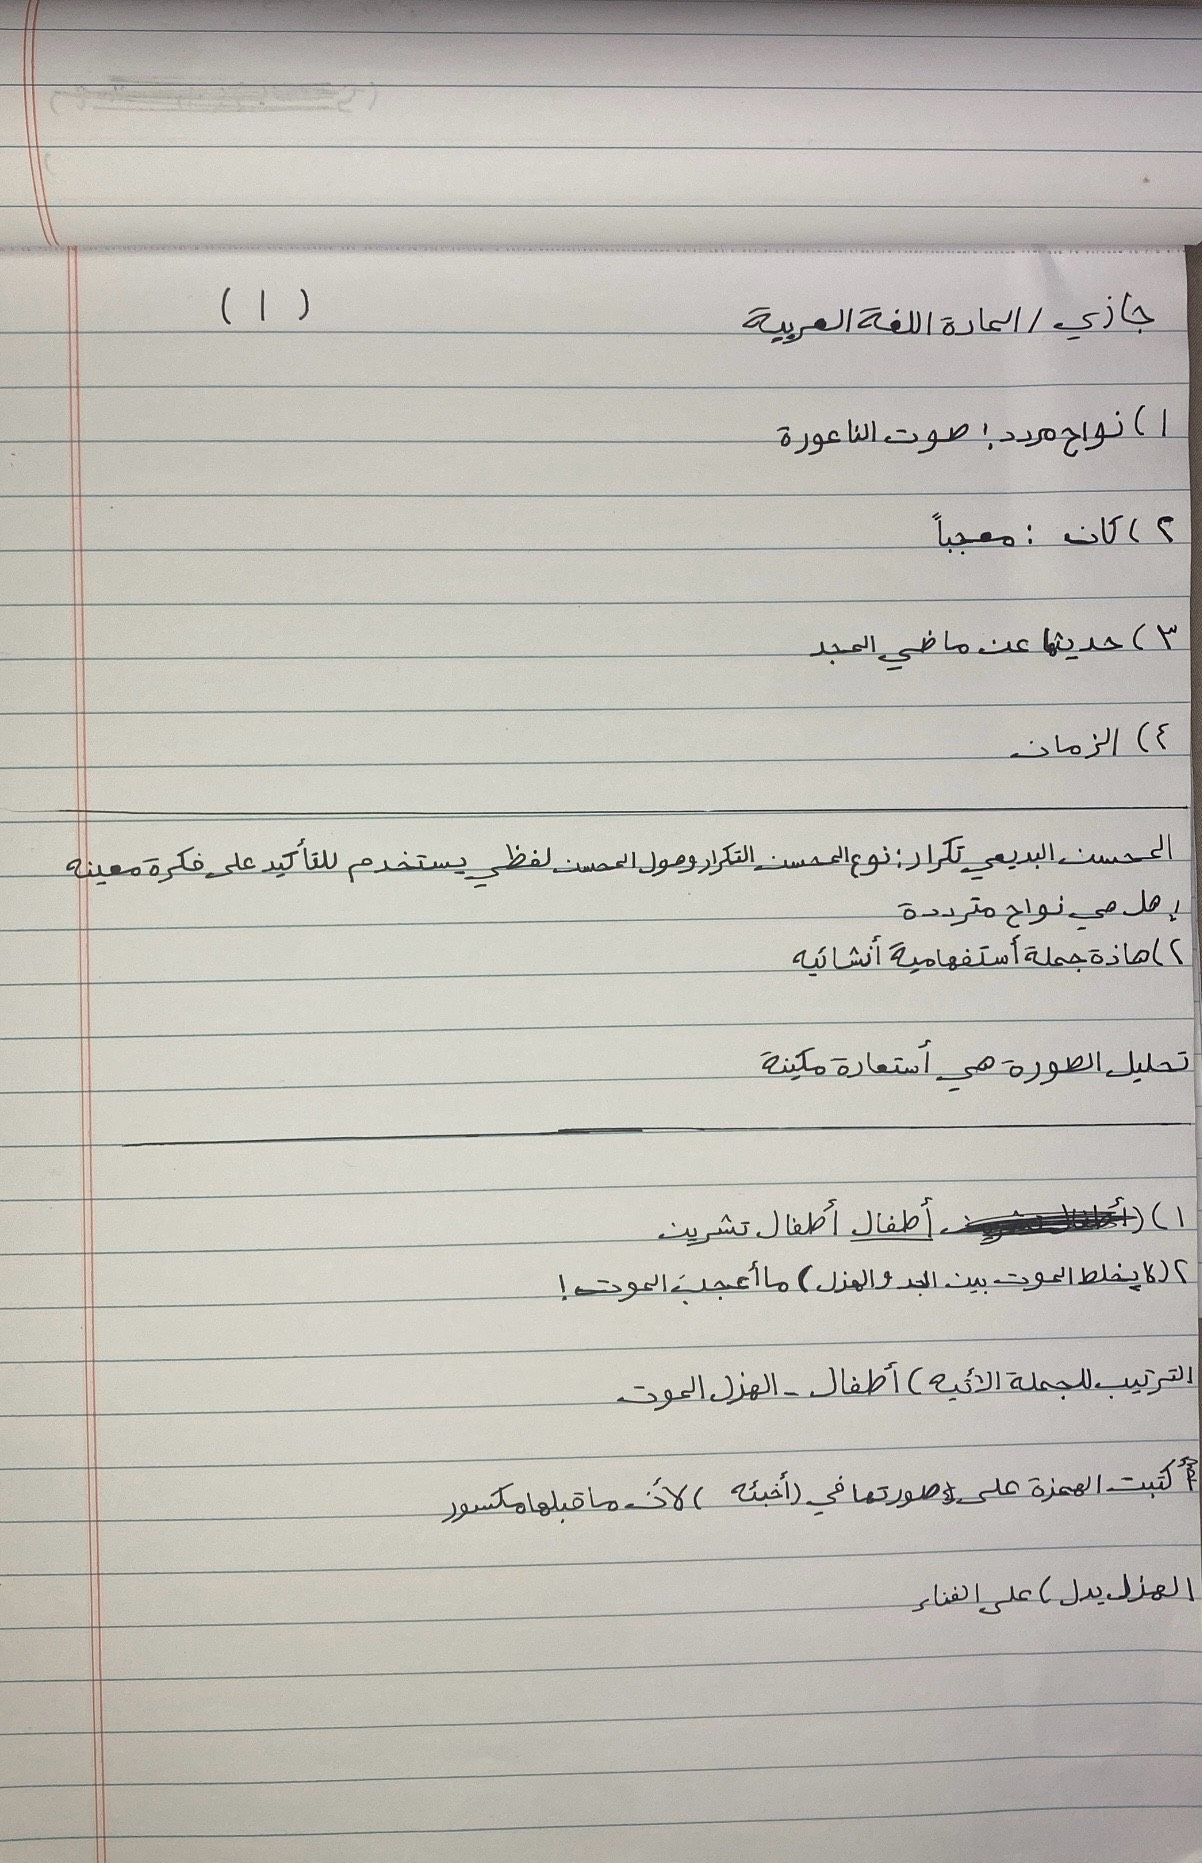 جازي / المادة اللغة العربية
( ١ )
١ ) نواح مردد : صوت الناعورة
٢ ) كان : معجباً
٣ ) حديثها عن ماضي المجد
٤ ) الزمان
المحسن البديعي تكرار : نوع المحسن التكرار وصول المحسن لفظي يستخدم للتأكيد على فكرة معينه
هل هي نواح مترددة
٢ ) هاذة جملة أستفهامية أنشائيه
تحليل الصورة هي أستعارة مكينة
١ ) أطفال أطفال تشرين
٢ ( لا يخلط الموت بين الجد والهزل ) ما أعجب الموت !
الترتيب للجملة الأتيه ) أطفال - الهزل الموت
كتبت الهمزة على صورتها في ( أخبئه ) لأن ما قبلها مكسور
الهزل يدل ) على الفناء